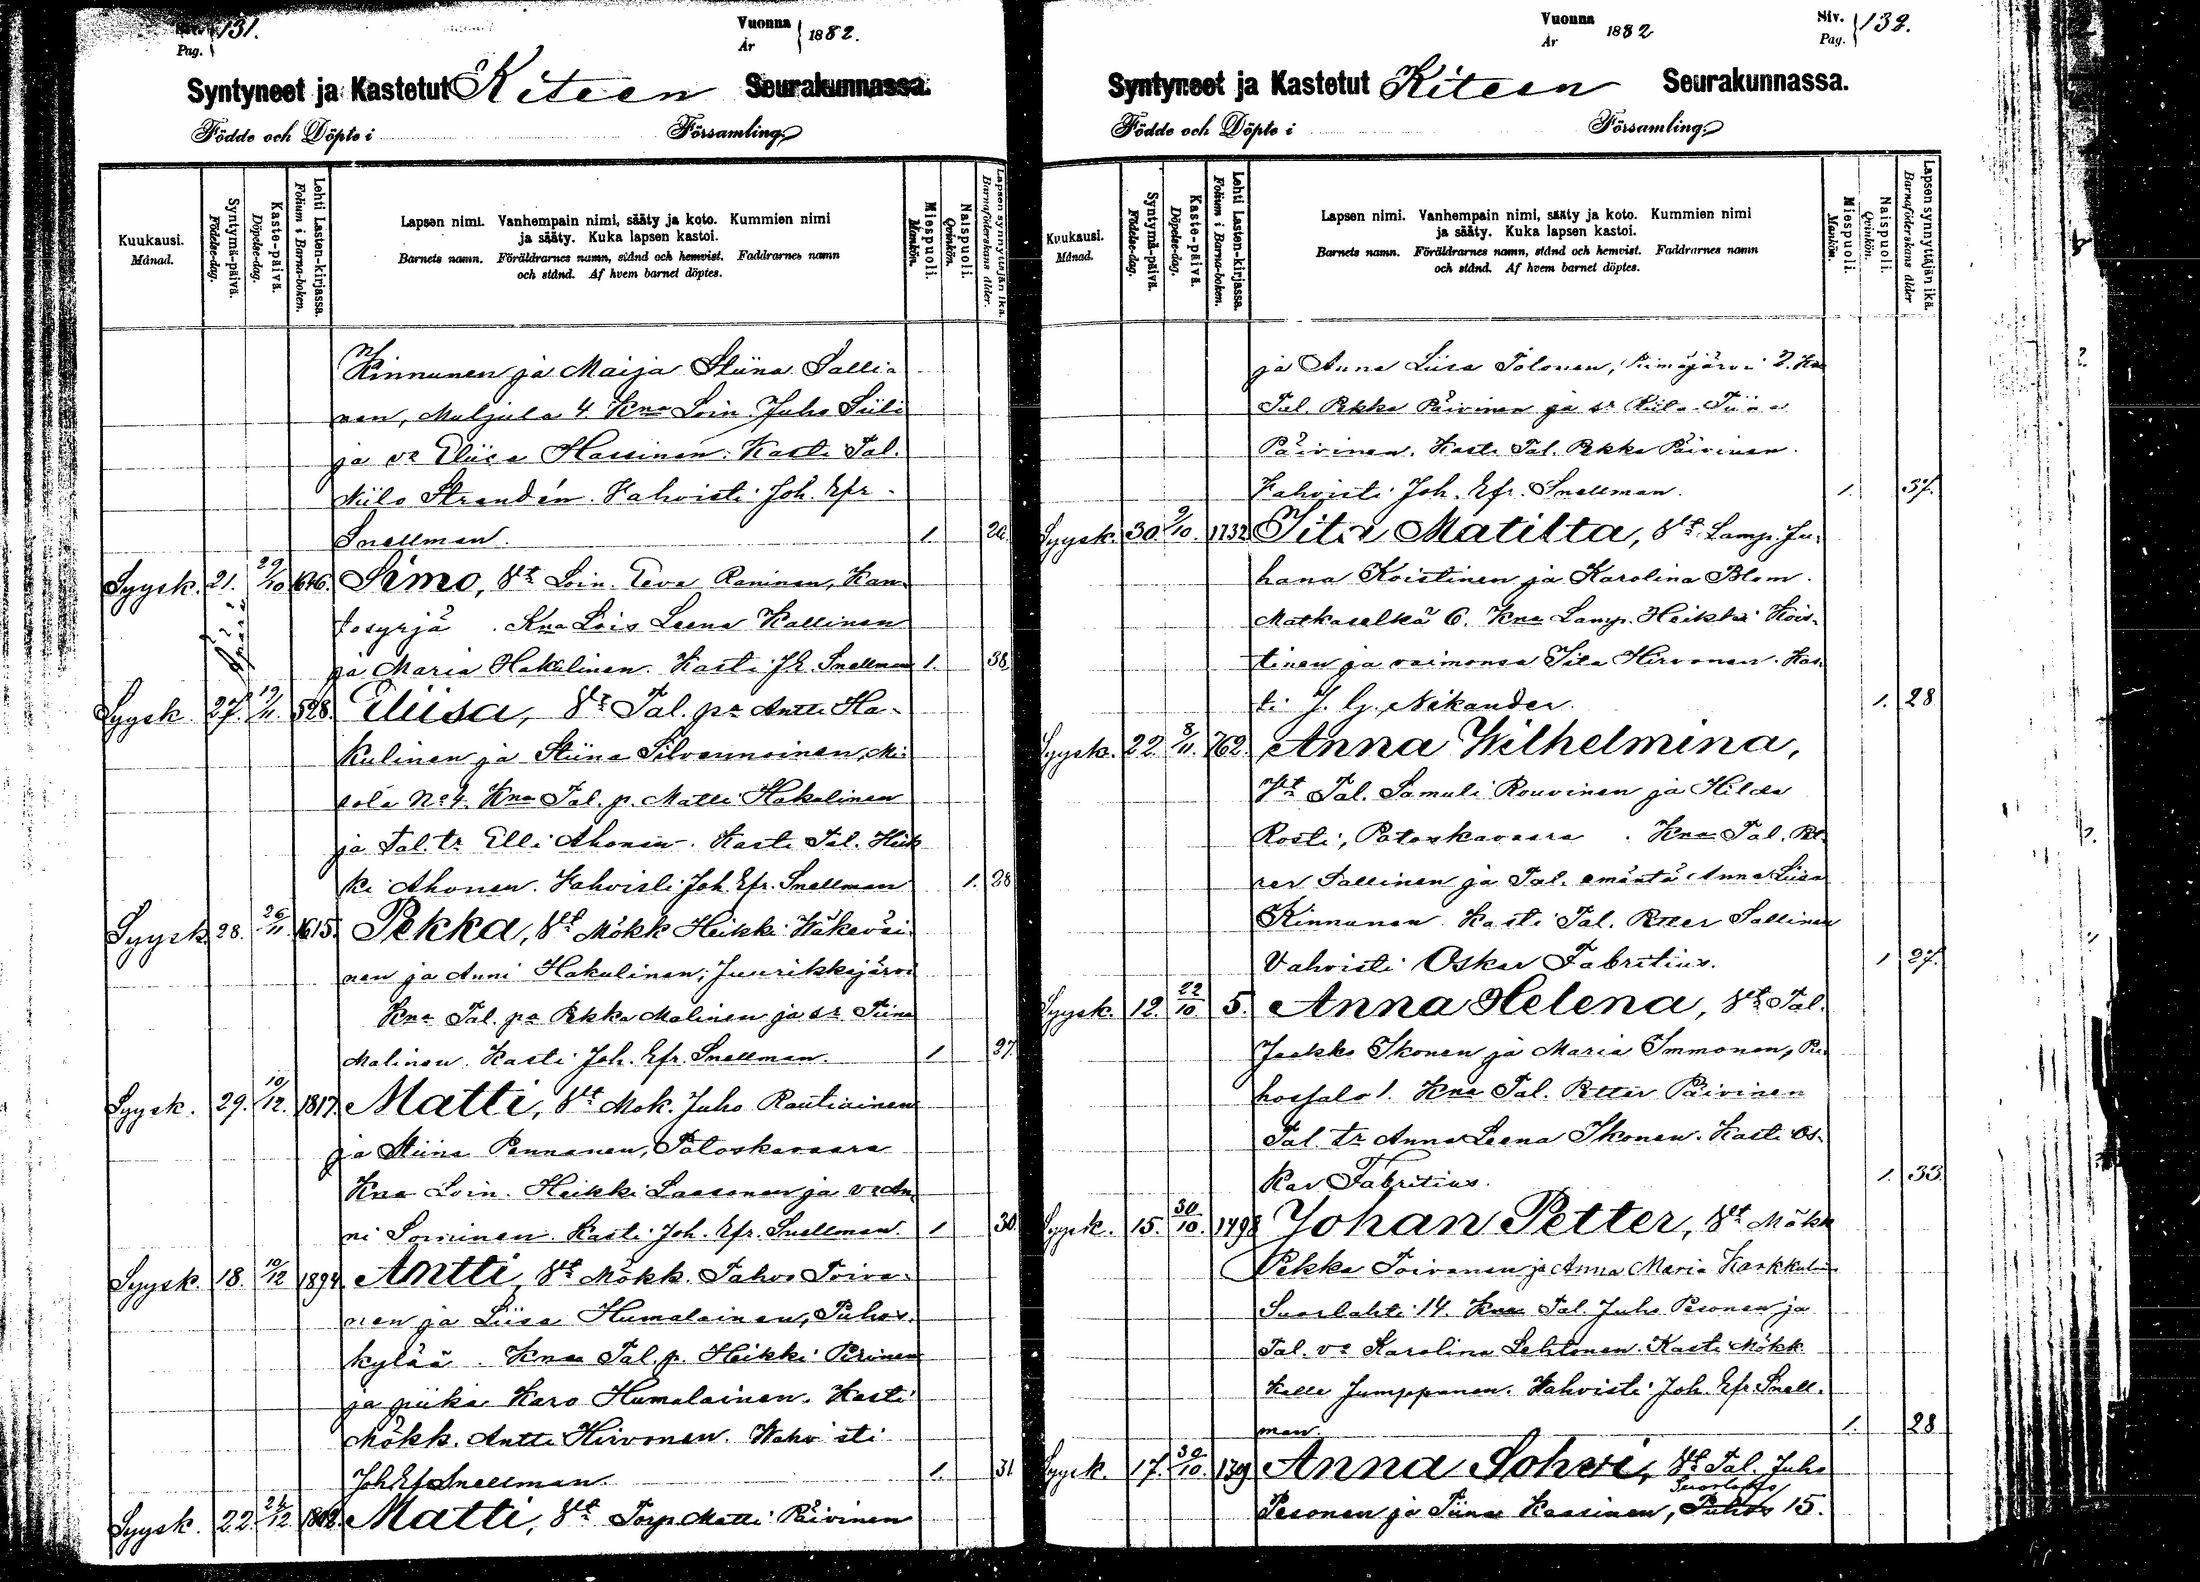 Siv. Pag. 131.
Vuonna År 1882.
Syntyneet ja Kastetut Kiteen Seurakunnassa.
Födde och Döpte i Församling.
Kuukausi. Månad.
Syntymä-päivä. Födelse-dag.
Kaste-päivä. Döpelse-dag.
Lehti Lasten-kirjassa. Folium i Barna-boken.
Lapsen nimi. Vanhempain nimi, sääty ja koto. Kummien nimi
ja sääty. Kuka lapsen kastoi.
Barnets namn. Föräldrarnes namn, stånd och hemvist. Faddrarnes namn
och stånd. Af hvem barnet döptes.
Miespuoli. Mankön.
Naispuoli. Qvinkön.
Lapsen synnyttäjän ikä. Barnaföderskans ålder.
Kinnunen ja Maija Stiina Salli-
nen, Muljula 4. Kna Loin. Juho
ja va Eliisa Hassinen. Kasti Tal.
Nilo Strandén. Vahvisti Joh. Efr.
Snellman. 1. 26
Syysk. 21. 29/10 1646. Simo, Vt Loin. Eeva Raninen, Kan-
tosyrjä. Kna Lois Leena Kallinen
ja Maria Hakulinen. Kasti J. E. Snellman 1. 38
Syysk. 27. 19/11 528. Eliisa, Vt Tal. pa Antti Ha-
kulinen ja Stiina Silvennoinen,
No 4. Kna Tal. p. Matti Hakulinen
ja Tal. tr Elli Ahonen. Kasti Tal. Heik
ki Ahonen. Vahvisti Joh. Efr. Snellman 1. 28
Syysk. 28. 26/11 1615. Pekka, Vt Mökk Heikki Wäkeväi-
nen ja Anni Hakulinen, Juurikkajärvi
Kna Tal. pa Pekka Malinen ja sr Tiina
Malinen. Kasti Joh. Efr. Snellman. 1 27.
Syysk. 29. 10/12. 1817. Matti, Vt Mök. Juho Rautiainen
ja Stiina Pennanen, Potoskavaara
Kna Loin. Heikki Laasonen ja va An
ni Sorminen. Kasti Joh. Efr. Snellman. 1 30
Syysk. 18. 10/12 1894 Antti, Vt Mökk. Tahvo Toiva-
nen ja Liisa Humalainen, Puhos-
kylää. Kna Tal. p. Heikki Pirinen
ja piika Karo Humalainen. Kasti
Mökk. Antti Hirvonen. Wahvisti
Joh Ef Snellman. 1. 31
Syysk. 22. 24/12 Matti, Vt Torp. Matti Päivinen
Siv. Pag. 132.
Vuonna År 1882
Syntyneet ja Kastetut Kiteen Seurakunnassa.
Födde och Döpte i Församling.
Kuukausi. Månad.
Syntymä-päivä. Födelse-dag.
Kaste-päivä. Döpelse-dag.
Lehti Lasten-kirjassa. Folium i Barna-boken.
Lapsen nimi. Vanhempain nimi, sääty ja koto. Kummien nimi
ja sääty. Kuka lapsen kastoi.
Barnets namn. Föräldrarnes namn, stånd och hemvist. Faddrarnes namn
och stånd. Af hvem barnet döptes.
Miespuoli. Mankön.
Naispuoli. Qvinkön.
Lapsen synnyttäjän ikä. Barnaföderskans ålder
ja Anna Liisa Tolonen, Piimäjärvi 2. Kna
Tal. Pekka Päivinen ja sr Tiina
Päivinen. Kasti Tal. Pekka Päivinen.
Vahvisti Joh. Efr. Snellman. 1. 37.
Syysk. 30 9/10. 1732 Iita Matilta, Vt Lamp. Ju-
hana Koistinen ja Karolina Blom.
Matkaselkä 6. Kna Lamp. Heikki Kois-
tinen ja vaimonsa Iita Hirvonen. Kas-
ti J. G. Nikander. 1. 28
Syysk. 22. 3/11. 762. Anna Wilhelmina,
Vt Tal. Samuli Rouvinen ja Hilda
Rosti, Potoskavaara. Kna Tal. Pet-
ter Sallinen ja Tal. emäntä Anna Liisa
Kinnunen. Kasti Tal. Petter Sallinen
Vahvisti Oskar Fabritius. 1 27.
Syysk. 12. 22/10 5. Anna Helena, Vt Tal.
Jaakko Ikonen ja Maria Immonen, Pu-
hossalo 1. Kna Tal. Petter Päivinen
Tal. tr Anna Leena Ikonen. Kasti Os-
kar Fabritius. 1. 33
Syysk. 15. 30/10. 1798 Johan Petter, Vt Mökk
Pekka Toivanen ja Anna Maria Karkkulainen
Suorlahti 14. Kna Tal. Juho Pesonen ja
Tal. va Karolina Lehtonen. Kasti Mökk.
Kalle Jumppanen. Wahvisti Joh. Efr. Snell-
man. 1. 28
Syysk. 17. 30/10. 139 Anna Sohvi, Vt Tal. Juho
Suorlahti
Pesonen ja Tiina Kaasinen, Puhos 15.